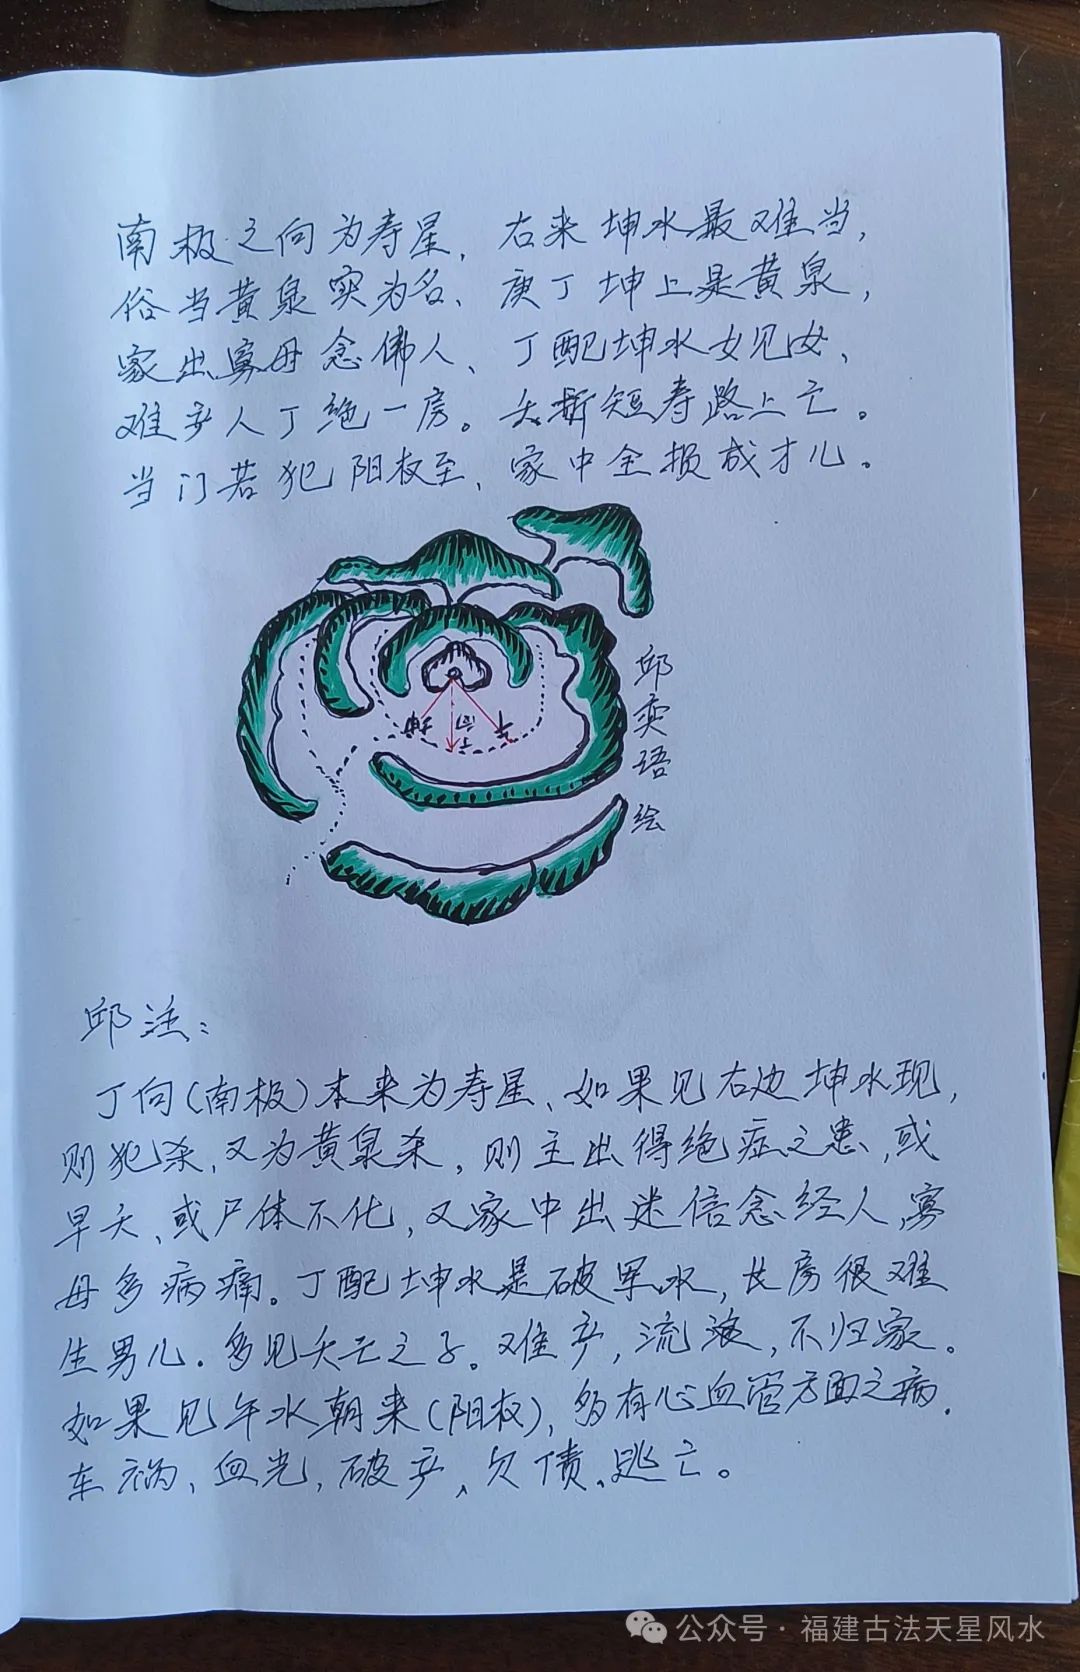 南极之向为寿星，右来坤水最难当，
俗当黄泉实为名、庚丁坤上是黄泉，
家出寡母念佛人、丁配坤水女见女、
难产人丁绝一房。夭折短寿路上亡。
当门若犯阳权至、家中全损成才儿。
坤
丁向
午
邱奕语绘
邱注：
丁向(南极)本来为寿星、如果见右边坤水现，
则犯杀，又为黄泉杀，则主出得绝症之患，或
早夭、或尸体不化，又家中出迷信念经人，寡
母多病痛。丁配坤水是破军水，长房很难
生男儿．多见夭亡之子。难产，流浪，不归家。
如果见午水朝来(阳权)，多有心血管方面之病．
车祸、血光，破产、欠债、逃亡。
公众号·福建古法天星风水